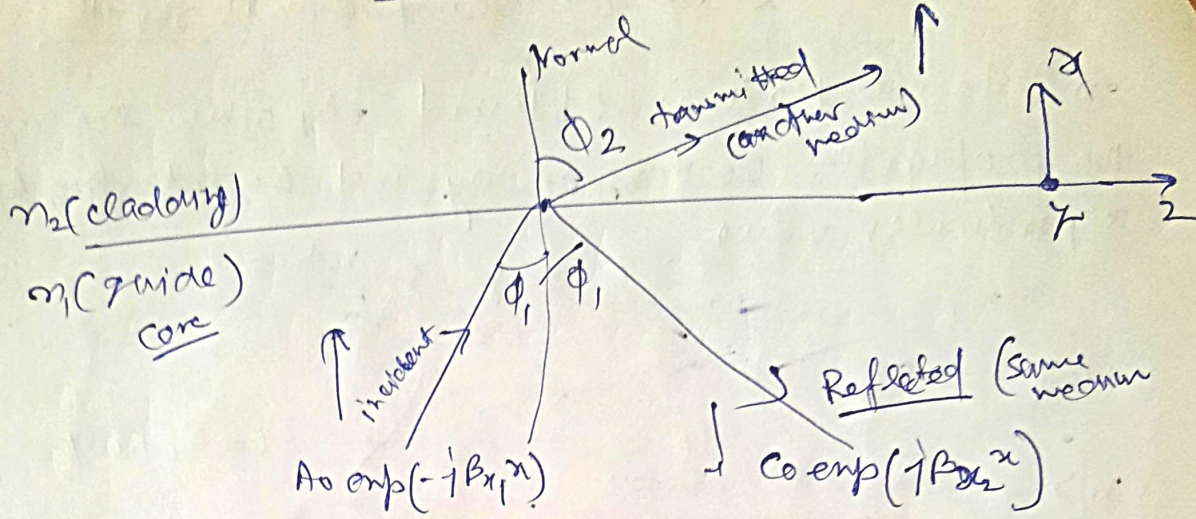 Normal
ϕ2
transmitted
(another
medium)
x
n2(cladding)
y
z
n1(guide)
core
ϕ1
ϕ1
incident
Reflected (same
medium
A0 exp(-jβx1x)
C0 exp(jβx2x)